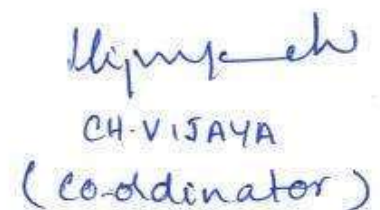 CH.VIJAYA
(Co-ddinator)